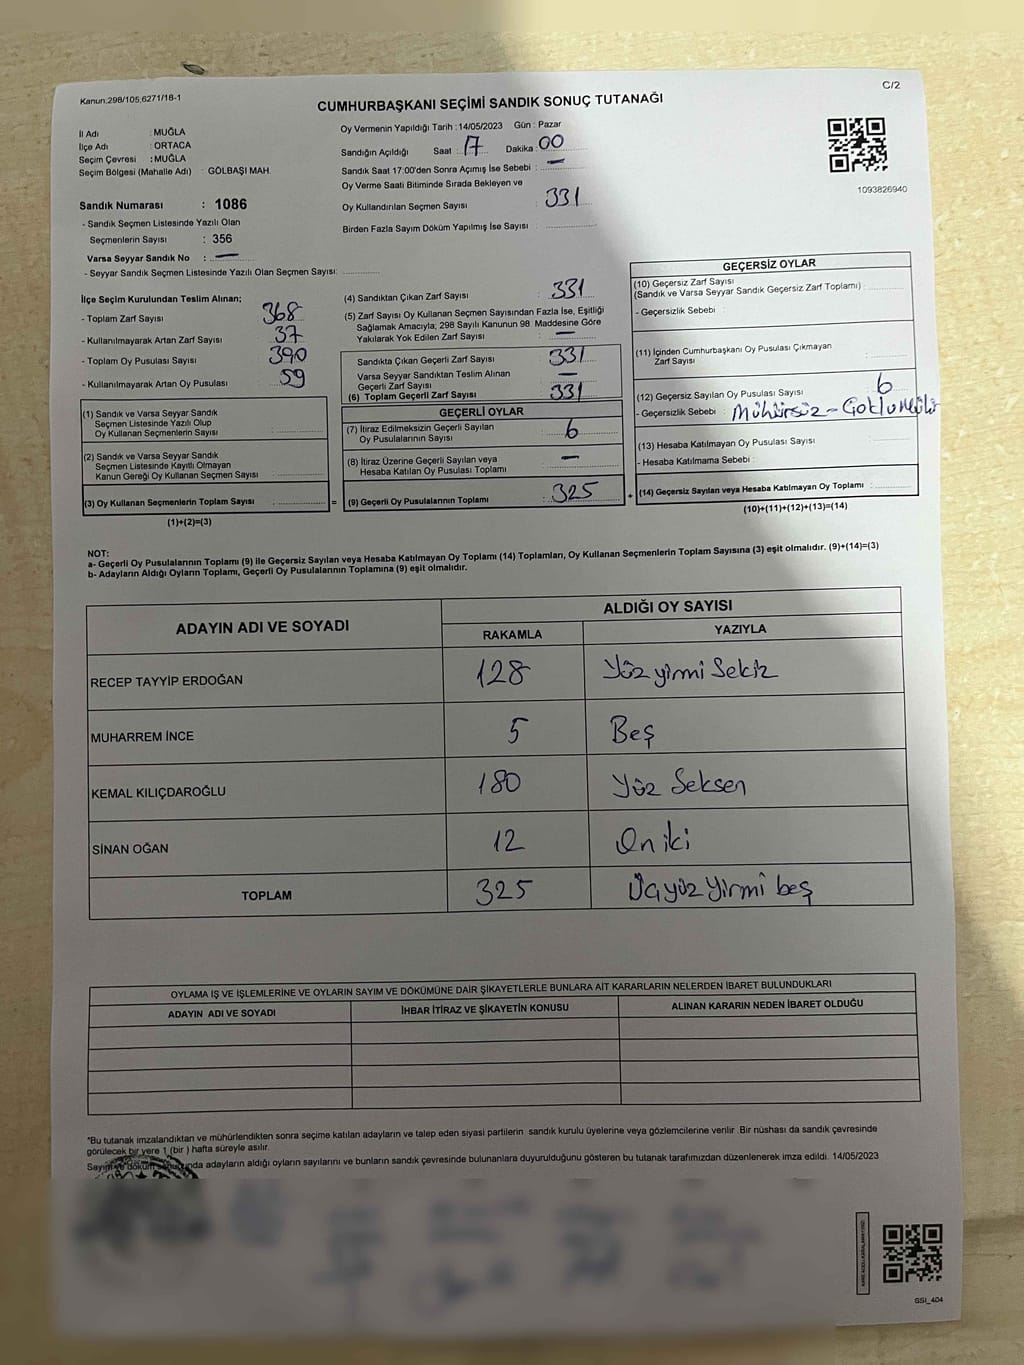 Kanun:298/105;6271/18-1
C/2
CUMHURBAŞKANI SEÇİMİ SANDIK SONUÇ TUTANAĞI
İl Adı : MUĞLA
İlçe Adı : ORTACA
Seçim Çevresi : MUĞLA
Seçim Bölgesi (Mahalle Adı) : GÖLBAŞI MAH.
Sandık Numarası : 1086
- Sandık Seçmen Listesinde Yazılı Olan
Seçmenlerin Sayısı : 356
Varsa Seyyar Sandık No : —
- Seyyar Sandık Seçmen Listesinde Yazılı Olan Seçmen Sayısı:
Oy Vermenin Yapıldığı Tarih :14/05/2023 Gün : Pazar
Sandığın Açıldığı Saat : 17 Dakika : 00
Sandık Saat 17:00'den Sonra Açımış İse Sebebi : —
Oy Verme Saati Bitiminde Sırada Bekleyen ve
Oy Kullandırılan Seçmen Sayısı : 331
Birden Fazla Sayım Döküm Yapılmış İse Sayısı :
1093826940
İlçe Seçim Kurulundan Teslim Alınan;
- Toplam Zarf Sayısı : 368
- Kullanılmayarak Artan Zarf Sayısı : 37
- Toplam Oy Pusulası Sayısı : 390
- Kullanılmayarak Artan Oy Pusulası : 59
(1) Sandık ve Varsa Seyyar Sandık
Seçmen Listesinde Yazılı Olup
Oy Kullanan Seçmenlerin Sayısı :
(2) Sandık ve Varsa Seyyar Sandık
Seçmen Listesinde Kayıtlı Olmayan
Kanun Gereği Oy Kullanan Seçmen Sayısı :
(3) Oy Kullanan Seçmenlerin Toplam Sayısı : =
(1)+(2)=(3)
(4) Sandıktan Çıkan Zarf Sayısı : 331
(5) Zarf Sayısı Oy Kullanan Seçmen Sayısından Fazla İse, Eşitliği
Sağlamak Amacıyla; 298 Sayılı Kanunun 98. Maddesine Göre
Yakılarak Yok Edilen Zarf Sayısı : —
Sandıkta Çıkan Geçerli Zarf Sayısı : 331
Varsa Seyyar Sandıktan Teslim Alınan
Geçerli Zarf Sayısı : —
(6) Toplam Geçerli Zarf Sayısı : 331
GEÇERLİ OYLAR
(7) İtiraz Edilmeksizin Geçerli Sayılan
Oy Pusulalarının Sayısı : 6
(8) İtiraz Üzerine Geçerli Sayılan veya
Hesaba Katılan Oy Pusulası Toplamı : —
(9) Geçerli Oy Pusulalarının Toplamı : 325 +
GEÇERSİZ OYLAR
(10) Geçersiz Zarf Sayısı
(Sandık ve Varsa Seyyar Sandık Geçersiz Zarf Toplamı) :
- Geçersizlik Sebebi :
(11) İçinden Cumhurbaşkanı Oy Pusulası Çıkmayan
Zarf Sayısı :
(12) Geçersiz Sayılan Oy Pusulası Sayısı : 6
- Geçersizlik Sebebi : Mühürsüz -
(13) Hesaba Katılmayan Oy Pusulası Sayısı :
- Hesaba Katılmama Sebebi :
(14) Geçersiz Sayılan veya Hesaba Katılmayan Oy Toplamı :
(10)+(11)+(12)+(13)=(14)
NOT:
a- Geçerli Oy Pusulalarının Toplamı (9) ile Geçersiz Sayılan veya Hesaba Katılmayan Oy Toplamı (14) Toplamları, Oy Kullanan Seçmenlerin Toplam Sayısına (3) eşit olmalıdır. (9)+(14)=(3)
b- Adayların Aldığı Oyların Toplamı, Geçerli Oy Pusulalarının Toplamına (9) eşit olmalıdır.
ADAYIN ADI VE SOYADI
ALDIĞI OY SAYISI
RAKAMLA YAZIYLA
RECEP TAYYİP ERDOĞAN 128 Yüz yirmi Sekiz
MUHARREM İNCE 5 Beş
KEMAL KILIÇDAROĞLU 180 Yüz Seksen
SİNAN OĞAN 12 On iki
TOPLAM 325 Üçyüz Yirmi beş
OYLAMA İŞ VE İŞLEMLERİNE VE OYLARIN SAYIM VE DÖKÜMÜNE DAİR ŞİKAYETLERLE BUNLARA AİT KARARLARIN NELERDEN İBARET BULUNDUKLARI
ADAYIN ADI VE SOYADI İHBAR İTİRAZ VE ŞİKAYETİN KONUSU ALINAN KARARIN NEDEN İBARET OLDUĞU
*Bu tutanak imzalandıktan ve mühürlendikten sonra seçime katılan adayların ve talep eden siyasi partilerin sandık kurulu üyelerine veya gözlemcilerine verilir .Bir nüshası da sandık çevresinde
görülecek bir yere 1 (bir ) hafta süreyle asılır.
Sayım ve döküm sonucunda adayların aldığı oyların sayılarını ve bunların sandık çevresinde bulunanlara duyurulduğunu gösteren bu tutanak tarafımızdan düzenlenerek imza edildi. 14/05/2023
GSI_404